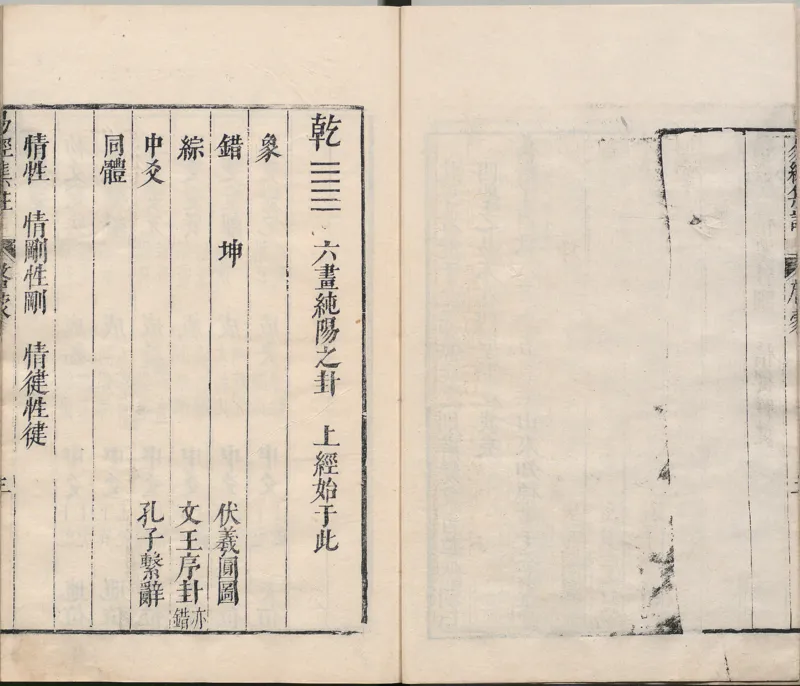 乾 ䷀ 六畫純陽之卦 上經始于此
象
錯 坤 伏羲圓圖
綜 文王序卦 亦錯
中爻 孔子繫辭
同體
情性 情剛性剛 情健性健
易經集註 啓蒙 三